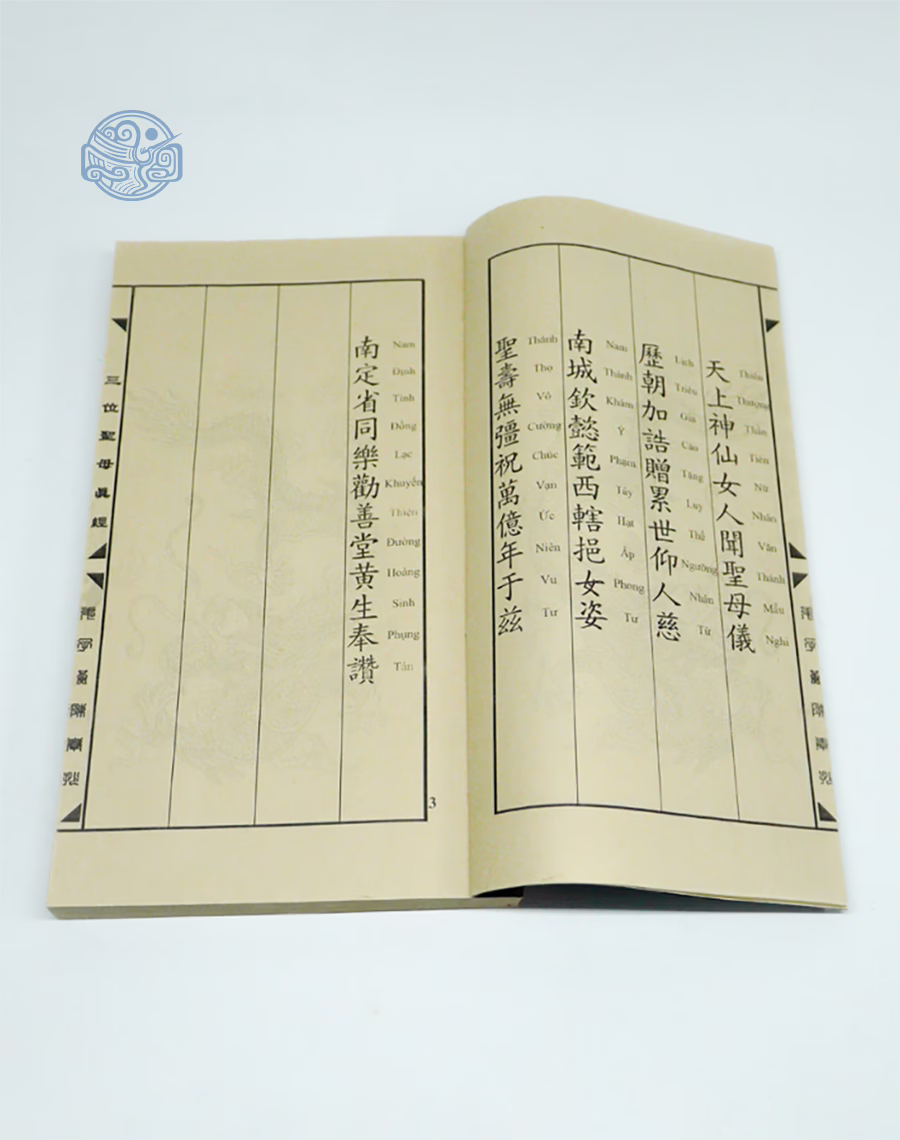 天上神仙女人聞聖母儀
Thiên Thượng Thần Tiên Nữ Nhân Văn Thánh Mẫu Nghi
歷朝加誥贈累世仰人慈
Lịch Triều Gia Cáo Tặng Luỵ Thế Ngưỡng Nhân Từ
南城欽懿範西轄挹女姿
Nam Thành Khâm Ý Phạm Tây Hạt Ấp Phong Tư
聖壽無彊祝萬億年于兹
Thánh Thọ Vô Cường Chúc Vạn Ức Niên Vu Tư
南定省同樂勸善堂黄生奉讚
Nam Định Tỉnh Đồng Lạc Khuyến Thiện Đường Hoàng Sinh Phụng Tán
3
三位聖母眞經